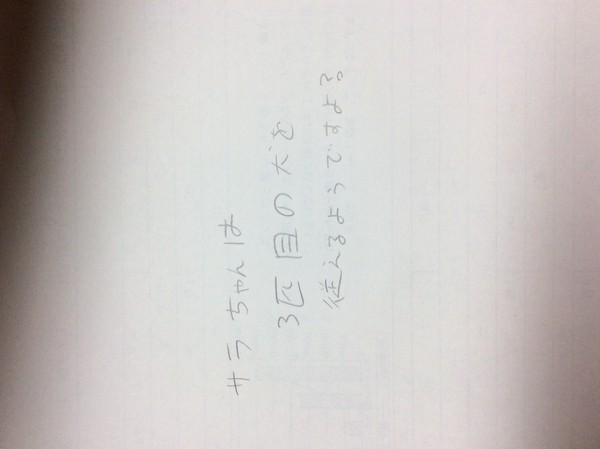 サラちゃんは
3匹目の犬を
従えるようですよ。